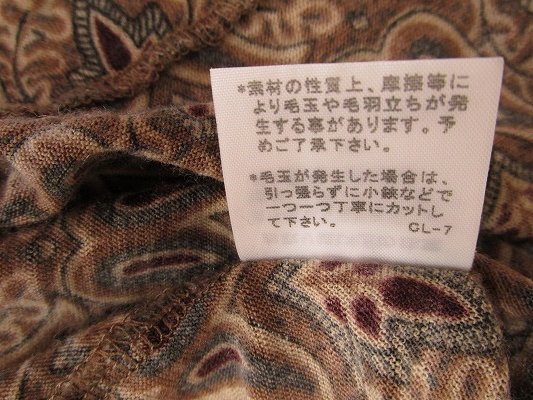 *素材の性質上、摩擦等に
より毛玉や毛羽立ちが発
生する事があります。予
めご了承下さい。
*毛玉が発生した場合は、
引っ張らずに小鋏などで
一つ一つ丁寧にカットし
て下さい。 CL-7